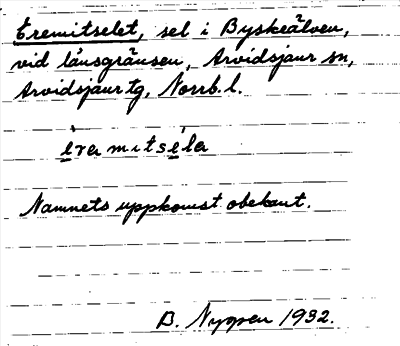 Eremitselet, sel i Byskeälven,
vid länsgränsen, Arvidsjaur sn,
Arvidsjaur tg, Norrb. l.
èramitséla
Namnets uppkomst obekant.
B. Nygren 1932.